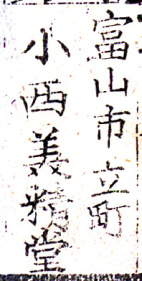 富山市立町
小西義精堂